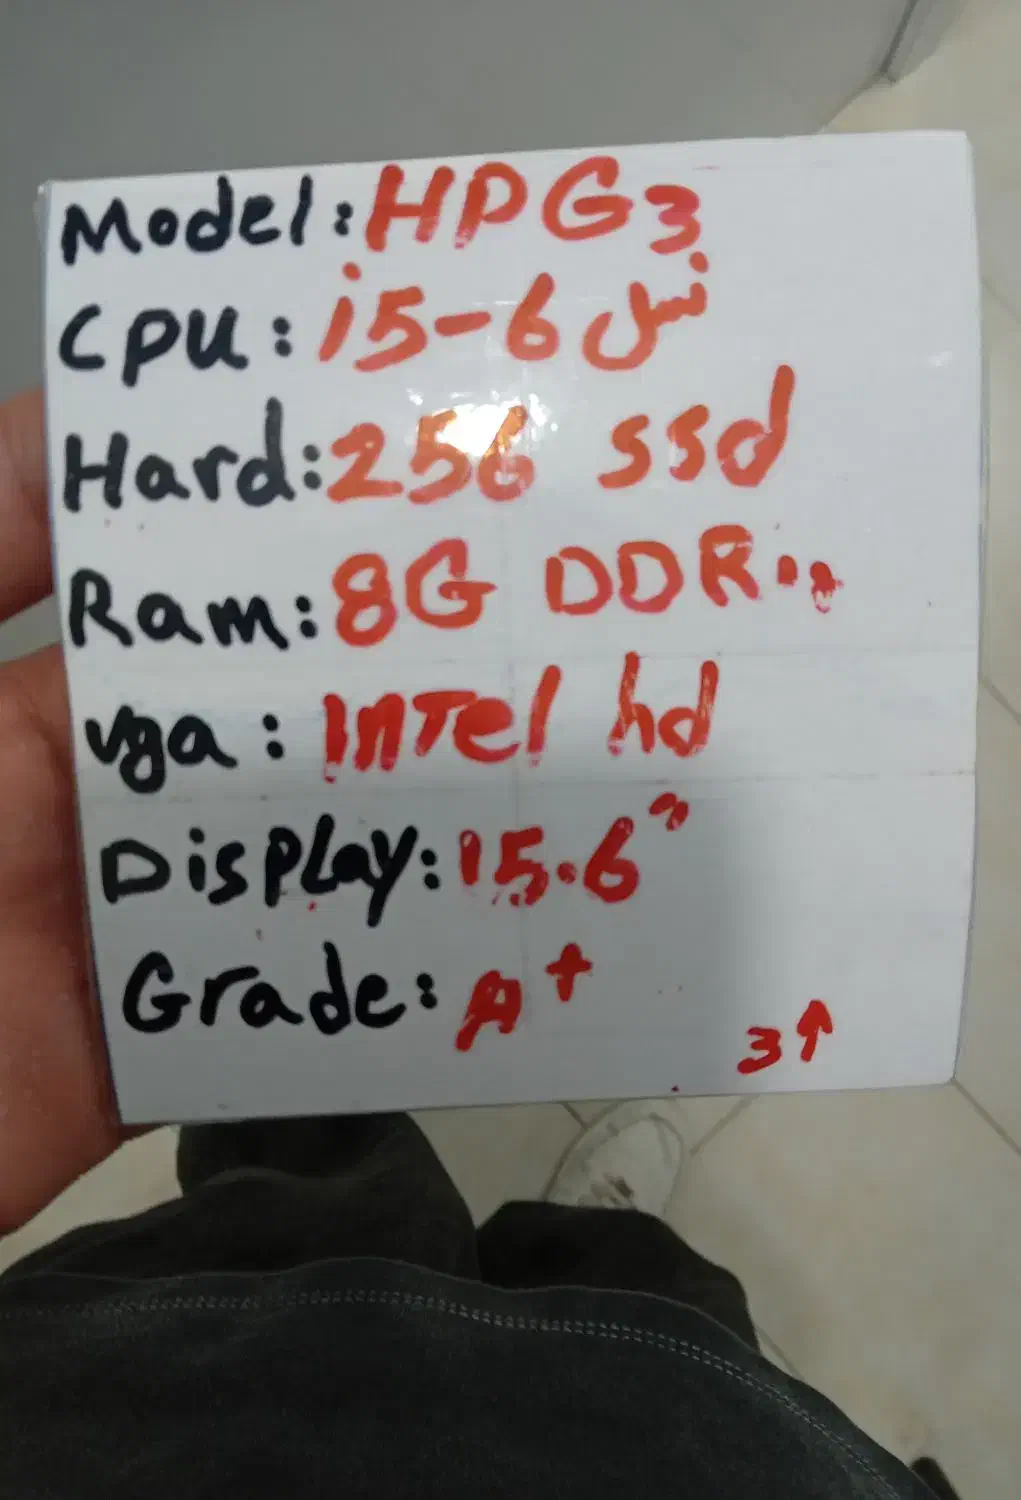 Model: HP G3
CPU: i5-6 نسل
Hard: 256 ssd
Ram: 8G DDR
vga: Intel hd
Display: 15.6"
Grade: A+
3↑